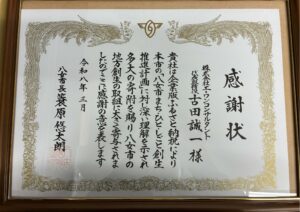 感謝状
株式会社エイワンコンサルタント
代表取締役 古田誠一 様
貴社は企業版ふるさと納税により
本市の八女市まち・ひと・しごと創生
推進計画に対し深い理解を示され
多大の寄附を賜り八女市の
地方創生の取組に大きく寄与されま
したのでここに感謝の意を表します
令和八年 三月
八女市長 簑原悠太朗